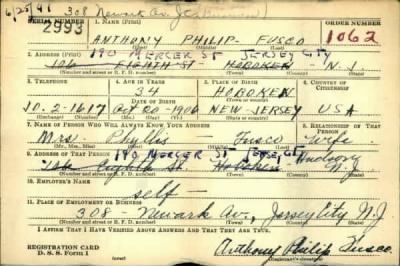 6/25/41 308 Newark Av. J.C.
SERIAL NUMBER 1. NAME (Print) ORDER NUMBER
2993 ANTHONY PHILIP FUSCO 1062
(First) (Middle) (Last)
190 MERCER ST JERSEY CITY
2. ADDRESS (Print)
106 EIGHTH ST HOBOKEN N.J.
(Number and street or R. F. D. number) (Town) (County) (State)
3. TELEPHONE 4. AGE IN YEARS 5. PLACE OF BIRTH 6. COUNTRY OF CITIZENSHIP
34 HOBOKEN
DATE OF BIRTH (Town or county)
10.2-1617 Oct 20-1906 NEW-JERSEY USA
(Exchange) (No.) (Mo.) (Day) (Yr.) (State or country)
7. NAME OF PERSON WHO WILL ALWAYS KNOW YOUR ADDRESS 8. RELATIONSHIP OF THAT PERSON
Mrs. Phyllis - Fusco wife
(Mr., Mrs., Miss) (First) (Middle) (Last)
190 MERCER ST JERSEY CITY
9. ADDRESS OF THAT PERSON
106 Eighth St. Hoboken Hudson N.J.
(Number and street or R. F. D. number) (Town) (County) (State)
10. EMPLOYER'S NAME
self-
11. PLACE OF EMPLOYMENT OR BUSINESS
308 - Newark Av., Jersey City N.J
(Number and street or R. F. D. number) (Town) (County) (State)
I AFFIRM THAT I HAVE VERIFIED ABOVE ANSWERS AND THAT THEY ARE TRUE.
REGISTRATION CARD
D. S. S. Form 1 (over) Anthony Philip Fusco.
(Registrant's signature)